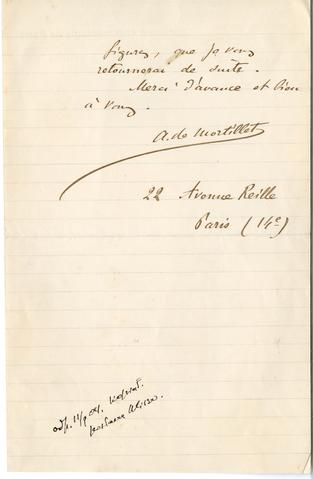 figures, que je vous
retournerai de suite.
Merci d'avance et bien
à vous.
A. de Mortillet
22 Avenue Reille
Paris (14e)
odp. 11/9 04.